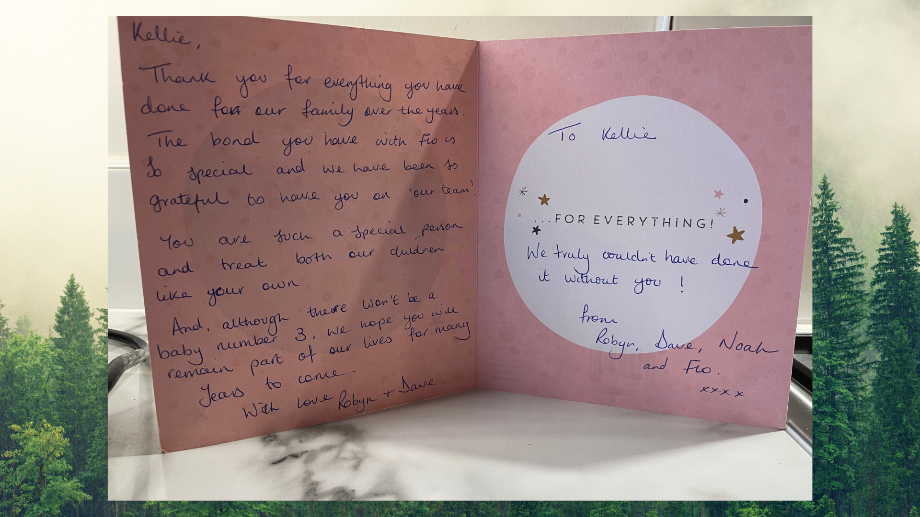 Kellie,
Thank you for everything you have
done for our family over the years.
The bond you have with Flo is
so special and we have been so
grateful to have you on 'our team'.
You are such a special person
and treat both our children
like your own.
And, although there won't be a
baby number 3, we hope you will
remain part of our lives for many
years to come.
With love Robyn + Dave.
To Kellie
...FOR EVERYTHING!
We truly couldn't have done
it without you!
from
Robyn, Dave, Noah
and Flo.
xxxx